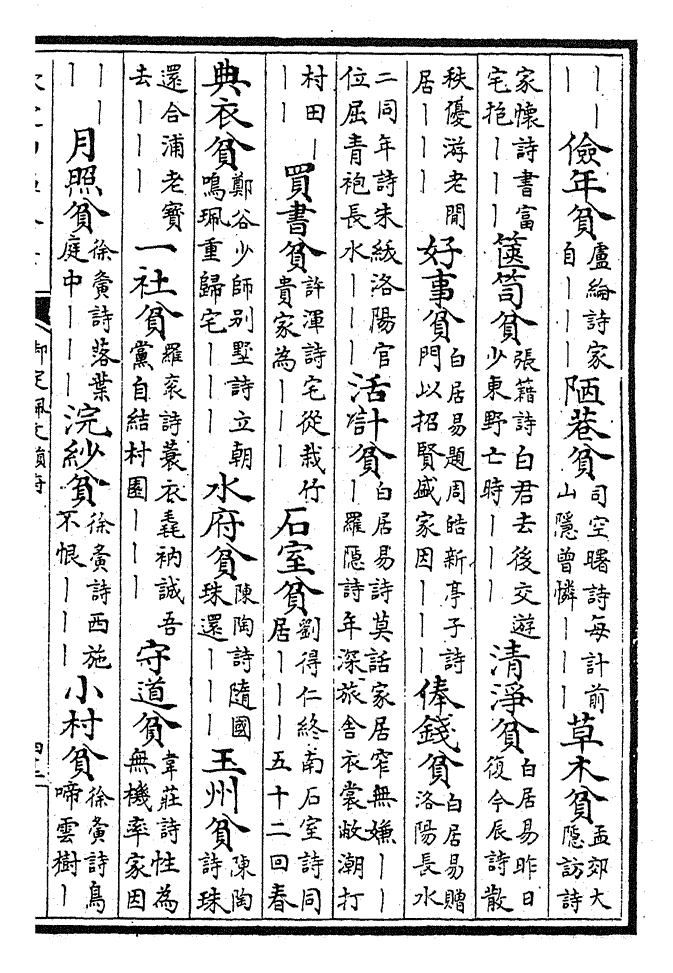 ｜｜｜儉年貧盧綸詩家自｜｜｜陋巷貧司空曙詩每計前山隱曾憐｜｜｜草木貧孟郊大隱訪詩
家懷詩書富宅抱｜｜｜篋笥貧張籍詩白君去後交遊少東野亡時｜｜｜清淨貧白居易昨日復今辰詩散
秩優游老閒居｜｜｜好事貧白居易題周皓新亭子詩門以招賢盛家因｜｜｜俸錢貧白居易贈洛陽長水
二同年詩朱紱洛陽官位屈青袍長水｜｜｜活計貧白居易詩莫話家居窄無嫌｜｜｜羅隱詩年深旅舍衣裳敝潮打
村田｜｜｜買書貧許渾詩宅從栽竹貴家為｜｜｜石室貧劉得仁終南石室詩同居｜｜｜五十二回春
典衣貧鄭谷少師别墅詩立朝鳴珮重歸宅｜｜｜水府貧陳陶詩隨國珠還｜｜｜玉州貧陳陶詩珠
還合浦老寶去｜｜｜一社貧羅衮詩蓑衣毳衲誠吾黨自結村園｜｜｜守道貧韋莊詩性為無機率家因
｜｜｜月照貧徐夤詩落葉庭中｜｜｜浣紗貧徐夤詩西施不恨｜｜｜小村貧徐夤詩鳥啼雲樹｜
御定佩文韻府